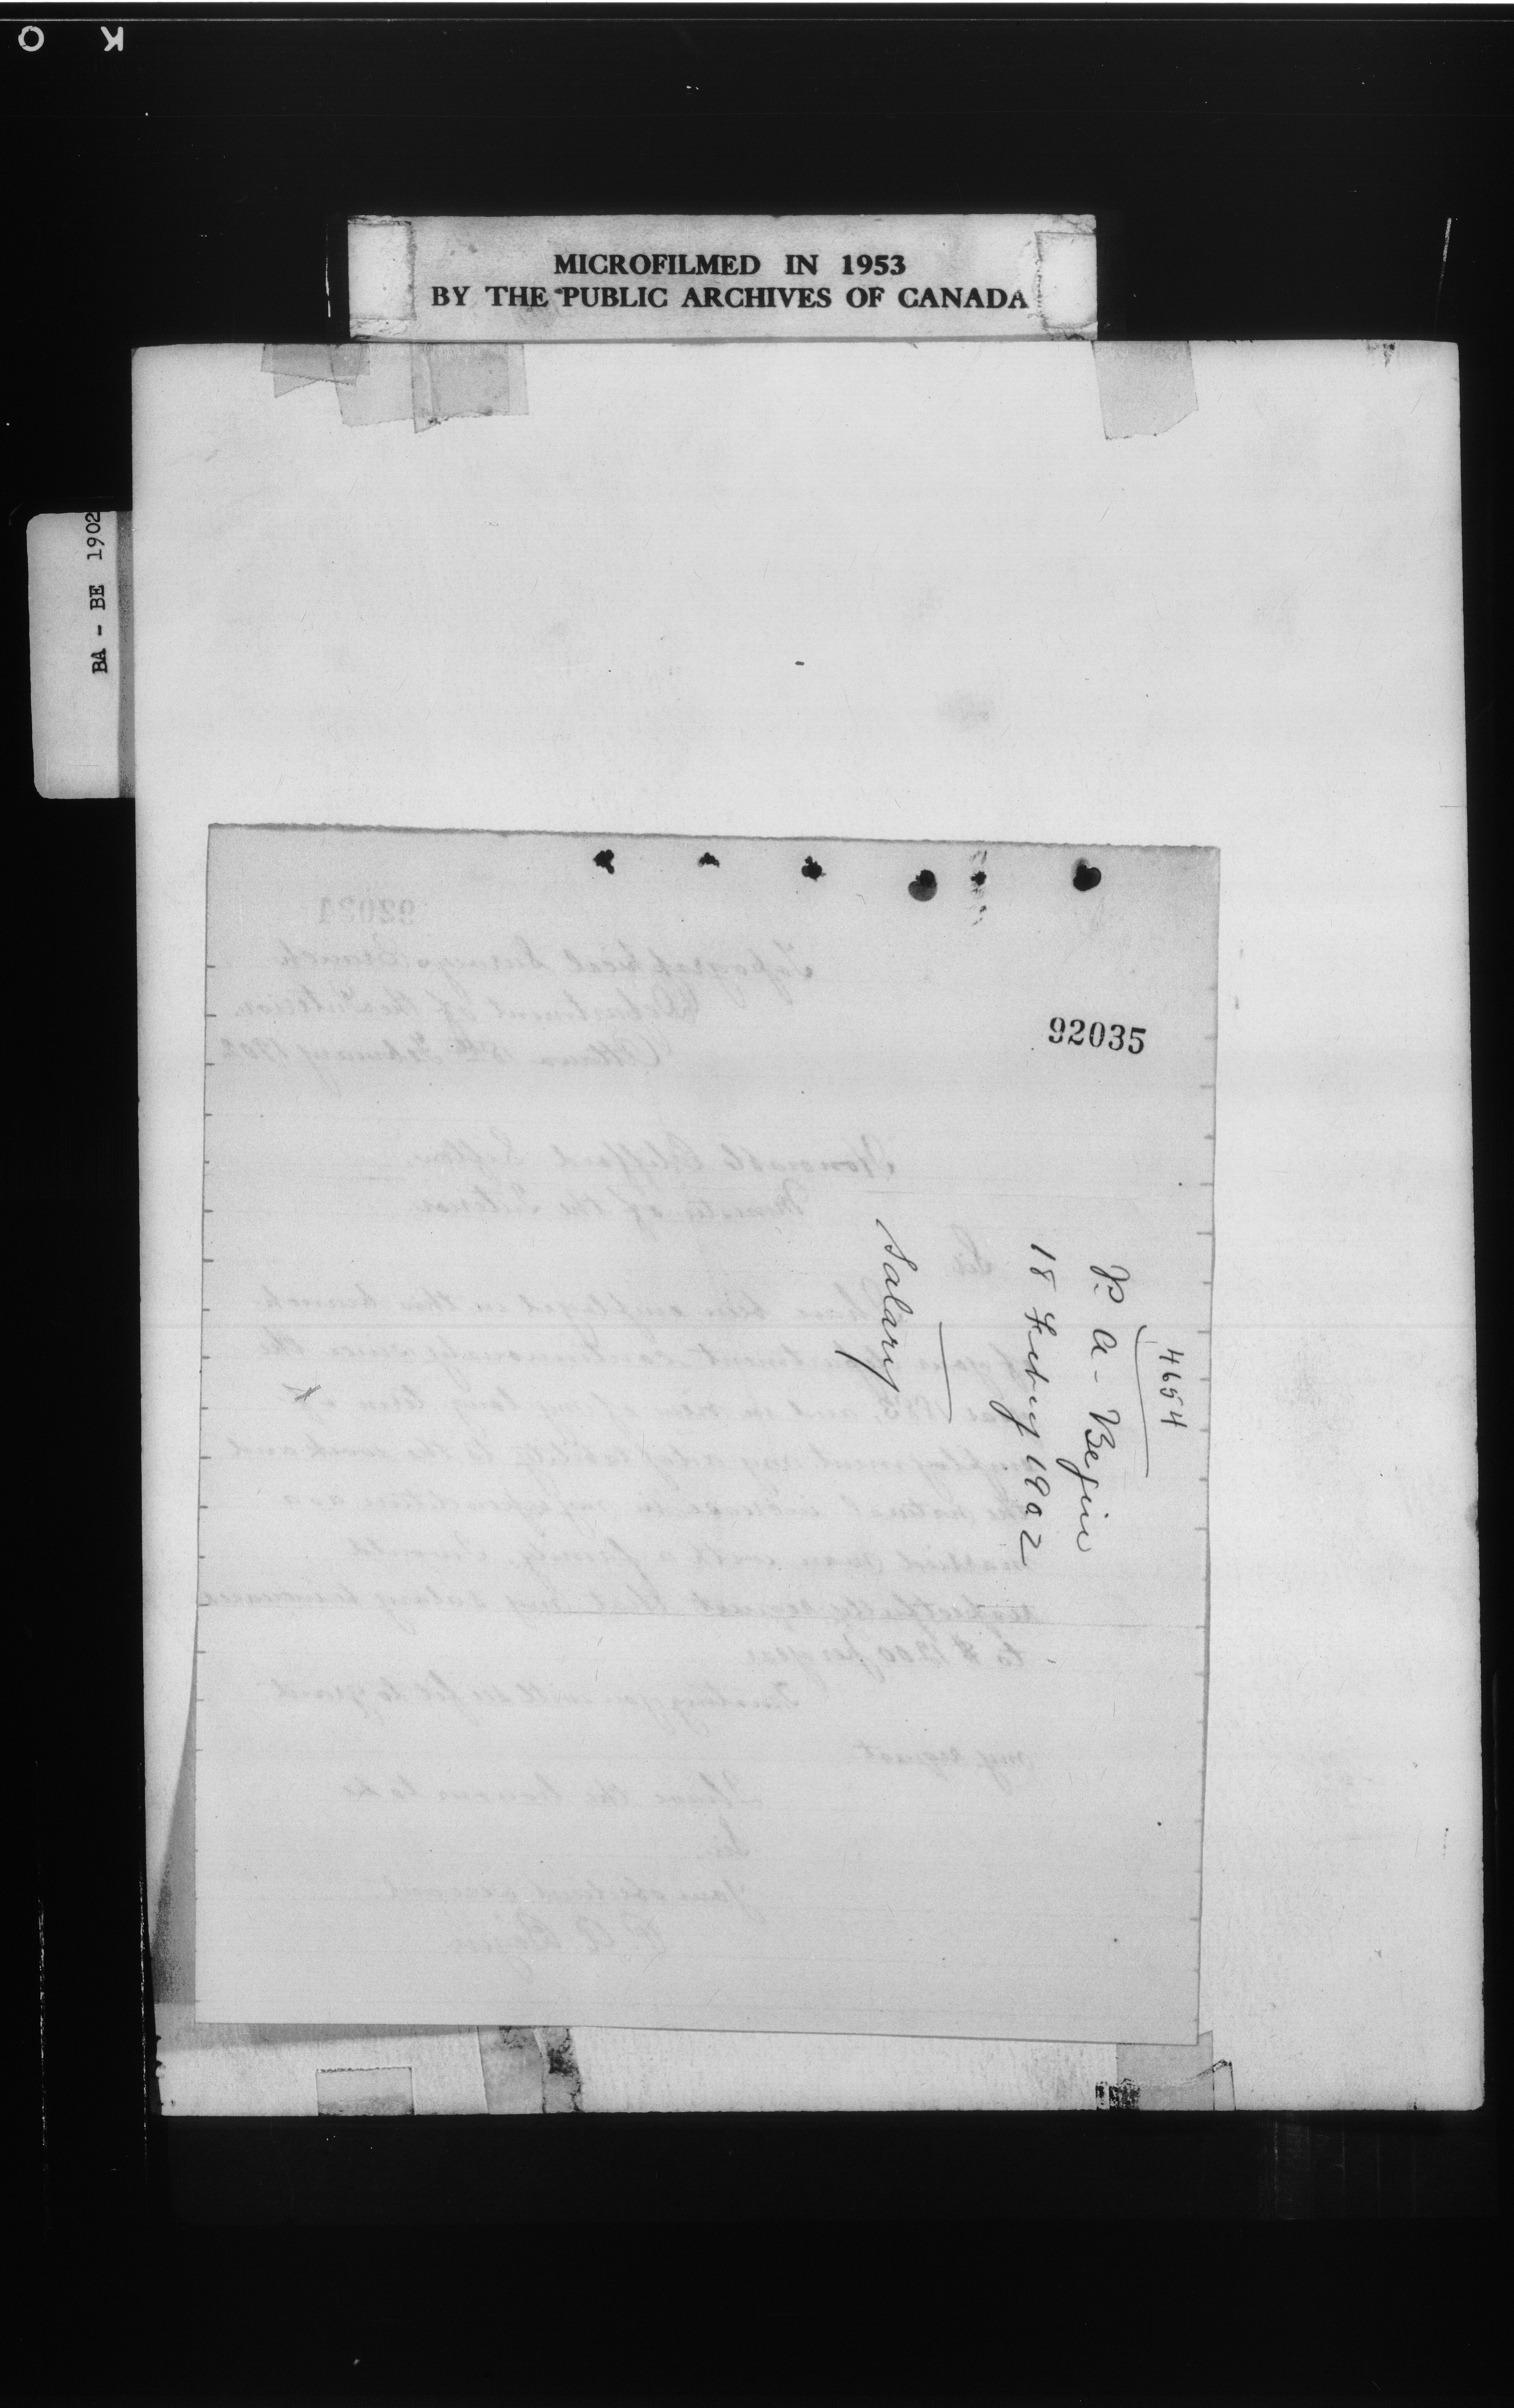 MICROFILMED IN 1953
BY THE PUBLIC ARCHIVES OF CANADA
BA - BE 1902
92035
4654
P. A. Begin
18 Febry 1902
Salary
92034
Topographical Surveys Branch
Department of the Interior
Ottawa 18th February 1902
Honorable Clifford Sifton
Minister of the Interior
Sir
I have been employed in this branch
of your department continuously since the
year 1883, and in view of my long term of
employment my adaptability to the work and
the natural increase in my expenditure as a
married man with a family, I would
respectfully request that my salary be increased
to $1200 per year
Trusting you will see fit to grant
my request
I have the honour to be
Sir
Your obedient servant
P. A. Begin